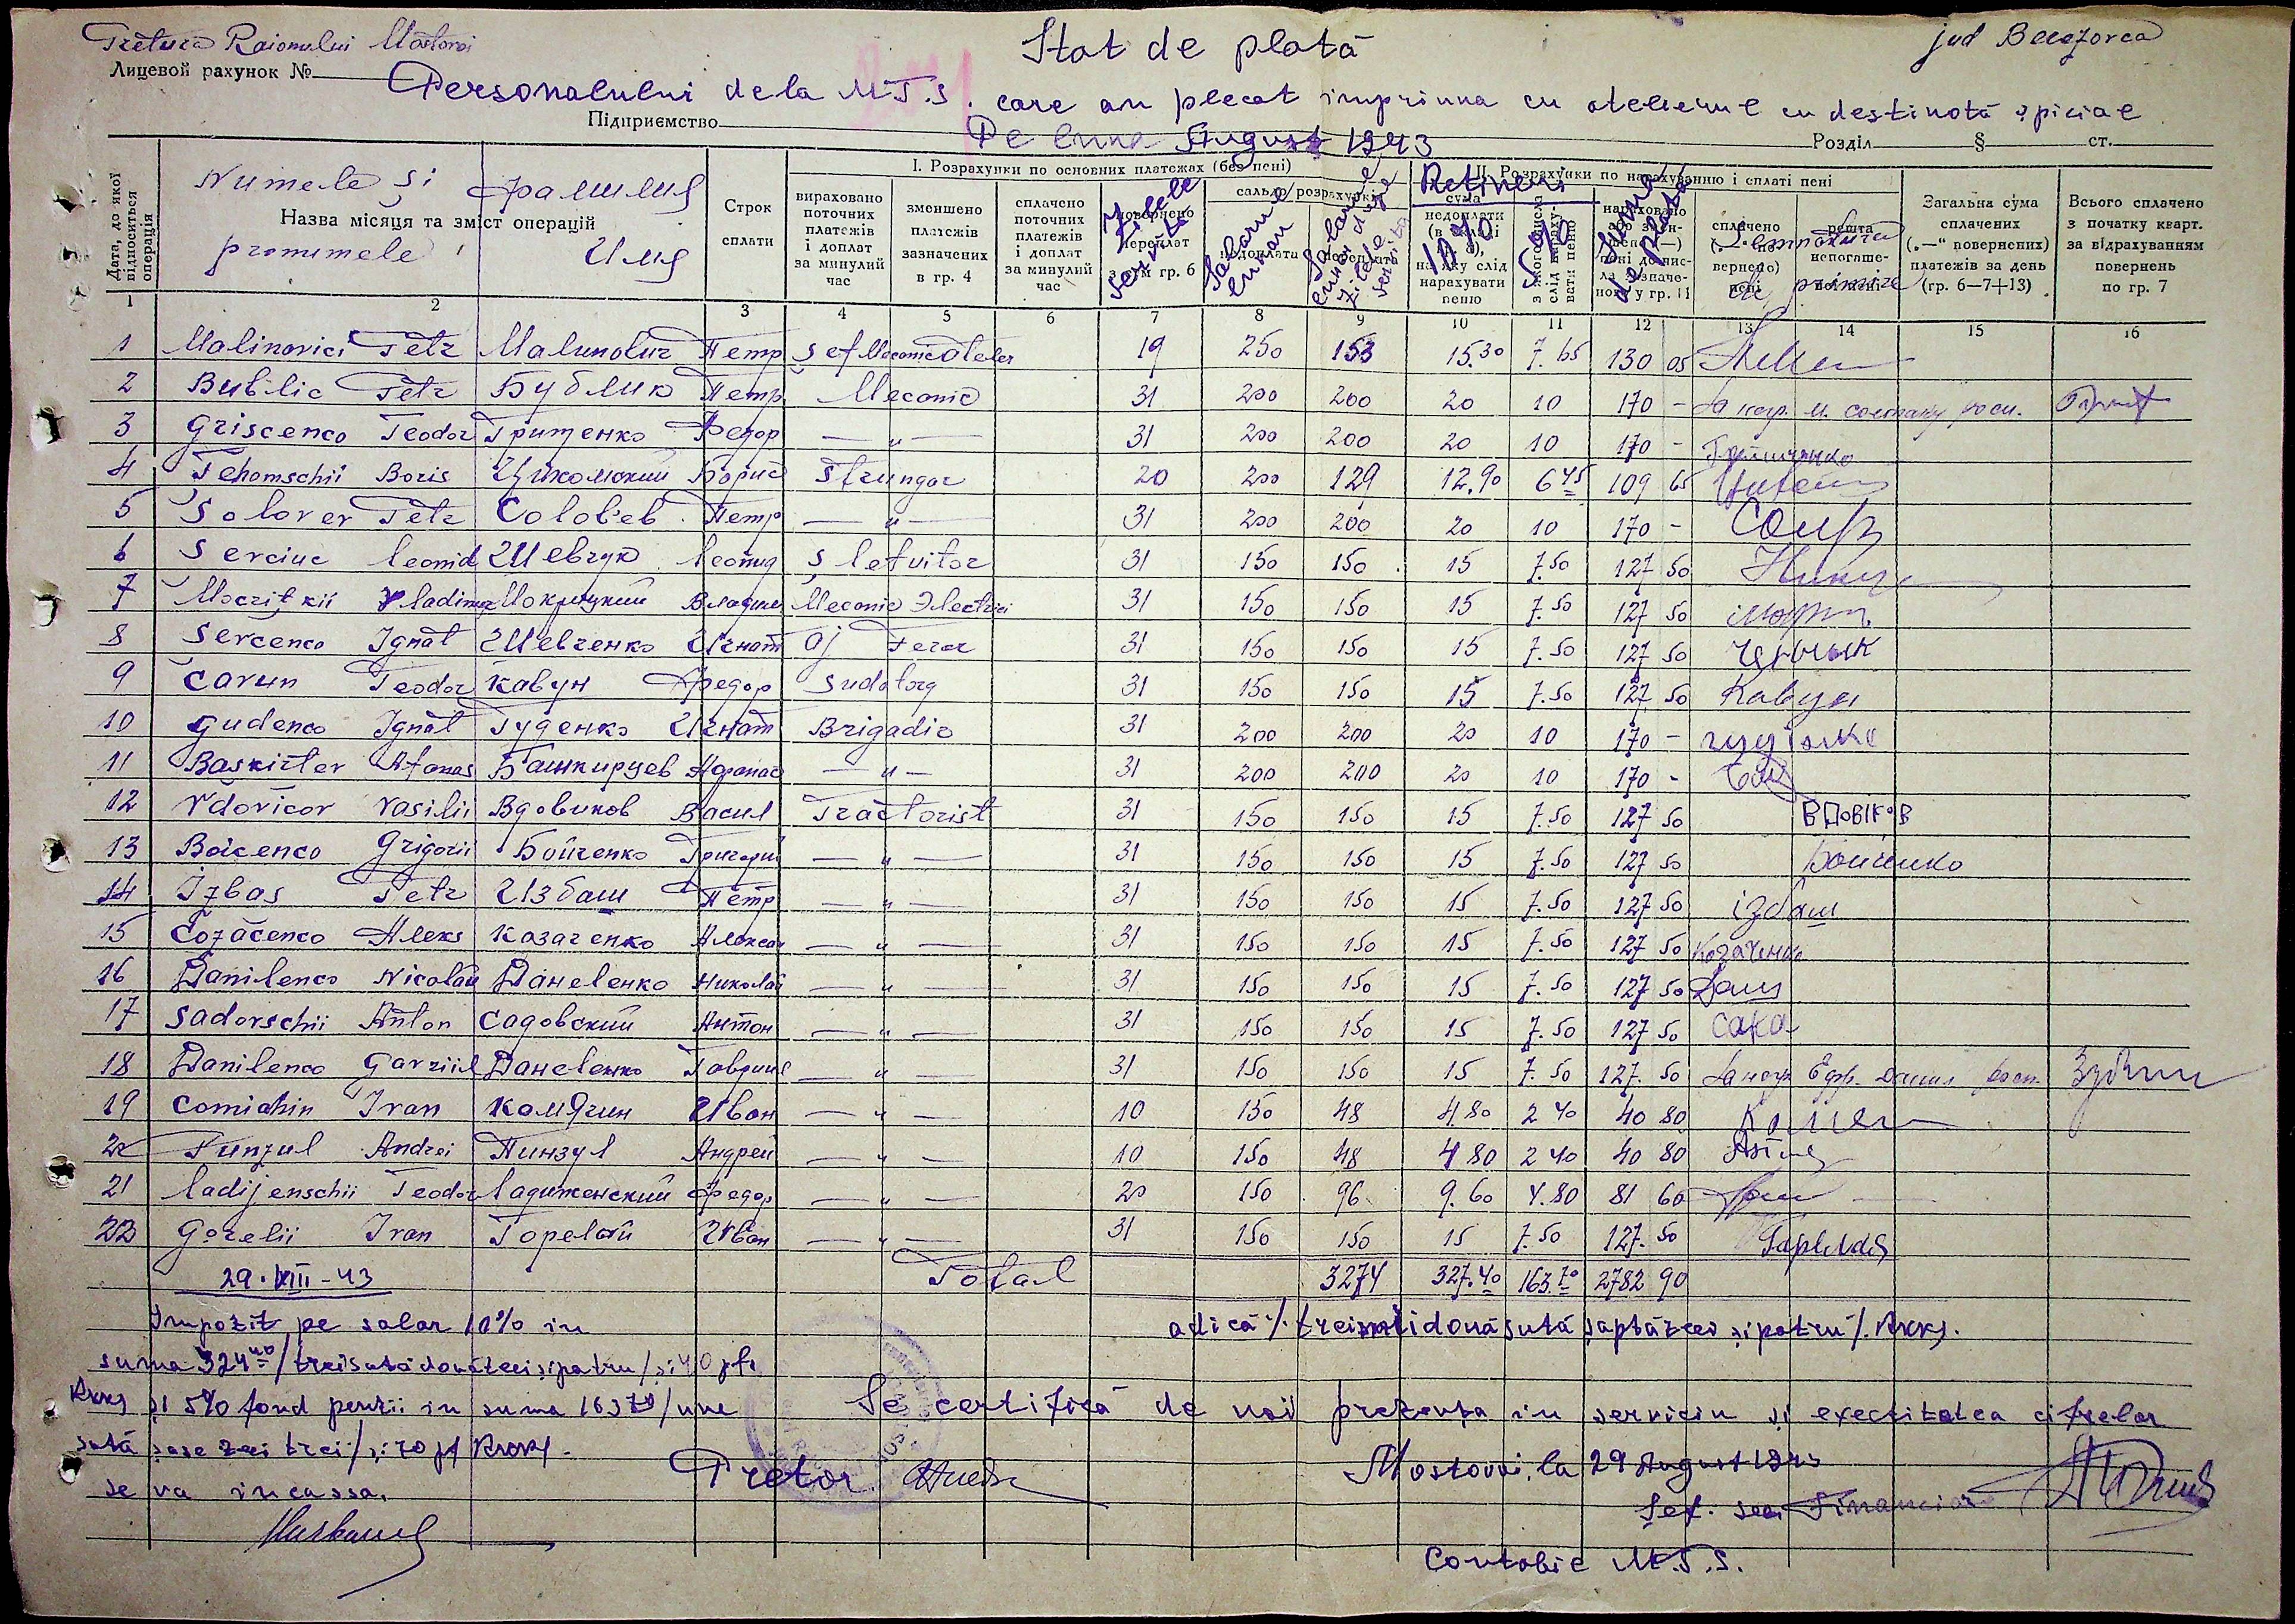 Pretura Raionului Mostovoi
Stat de plată
jud Berezovca
Лицевой рахунок №
Personalului de la M.T.S. care au plecat împriuna cu atelierul cu destinotă spicial
Підприємство
Pe luna August 1943
Розділ § ст.
Дата, до якої відноситься операція
Numele și Фамилия
Назва місяця та зміст операцій
pronumele Имя
Строк сплати
I. Розрахунки по основних платежах (без пені)
вираховано поточних платежів і доплат за минулий час
зменшено платежів зазначених в гр. 4
сплачено поточних платежів і доплат за минулий час
Zilele servite
сальдо розрахунки
Salariu lunar
II. Розрахунки по нарахуванню і сплаті пені
Retineri
10%
5%
Suma de plată
Semnătura de primire
Загальна сума сплачених („—“ повернених) платежів за день (гр. 6—7+13)
Всього сплачено з початку кварт. за відрахуванням повернень по гр. 7
1 2 3 4 5 6 7 8 9 10 11 12 13 14 15 16
1 Malinovici Petr Малинович Петр Șef Mecanic Atelier 19 250 153 15.30 7.65 130 05
2 Bublic Petr Бублик Петр Mecanic 31 200 200 20 10 170 -
3 Griscenco Teodor Грищенко Федор — „ — 31 200 200 20 10 170 - Грищенко
4 Tehomschii Boris Цихомский Борис Strungar 20 200 129 12.90 6 45 109 65
5 Solovev Petr Соловьев Петр — „ — 31 200 200 20 10 170 -
6 Sevciuc Leonid Шевчук Леонид Șlefuitor 31 150 150 15 7.50 127 50
7 Mocrițkii Vladimir Мокрицкий Владимир Mecanic Electrici 31 150 150 15 7.50 127 50
8 Sevcenco Ignat Шевченко Игнат aj Ferar 31 150 150 15 7.50 127 50
9 Cavun Teodor Кавун Федор Sudatorg 31 150 150 15 7.50 127 50 Кавун
10 Gudenco Ignat Гуденко Игнат Brigadir 31 200 200 20 10 170 -
11 Bașkirțev Afanas Башкирцев Афанас — „ — 31 200 200 20 10 170 -
12 Vdovicov Vasilii Вдовиков Васил Tractorist 31 150 150 15 7.50 127 50 ВДОВІКОВ
13 Boicenco Grigorii Бойченко Григорий — „ — 31 150 150 15 7.50 127 50 Бойченко
14 Izbas Petr Избаш Петр — „ — 31 150 150 15 7.50 127 50 ізбаш
15 Cozacenco Алекs Казаченко Алексан — „ — 31 150 150 15 7.50 127 50 Козаченко
16 Danilenco Nicolau Даниленко Николай — „ — 31 150 150 15 7.50 127 50
17 Sadovschii Anton Садовский Антон — „ — 31 150 150 15 7.50 127 50
18 Danilenco Gavriil Даниленко Гавриил — „ — 31 150 150 15 7.50 127.50
19 Comiahin Ivan Комячин Иван — „ — 10 150 48 4.80 2 40 40 80
20 Punzul Andrei Пинзул Андрей — „ — 10 150 48 4 80 2 40 40 80
21 Ladijenschii Teodor Ладиженский Федор — „ — 20 150 96 9.60 4.80 81 60
22 Gorelii Ivan Горелый Иван — „ — 31 150 150 15 7.50 127.50
29.VIII-43 Total 3274 327.40 163.70 2782 90
Impozit pe salar 10% in
adică /. treimiidouăsută șaptăzeci șipatru /. Rkks.
suma 324 40 / treisutădouăzeci șipatru / și 40 pf
Rkks și 5% fond penzii in suma 163 70 / una
sută șase zeci trei / și 70 pf Rkks.
se va incassa.
Se certifică de noi prezența in serviciu și exectitatea cifrelor
Pretor
Mostovoi, la 29 August 1943
Șef. sec Financiar
Contabil M.T.S.